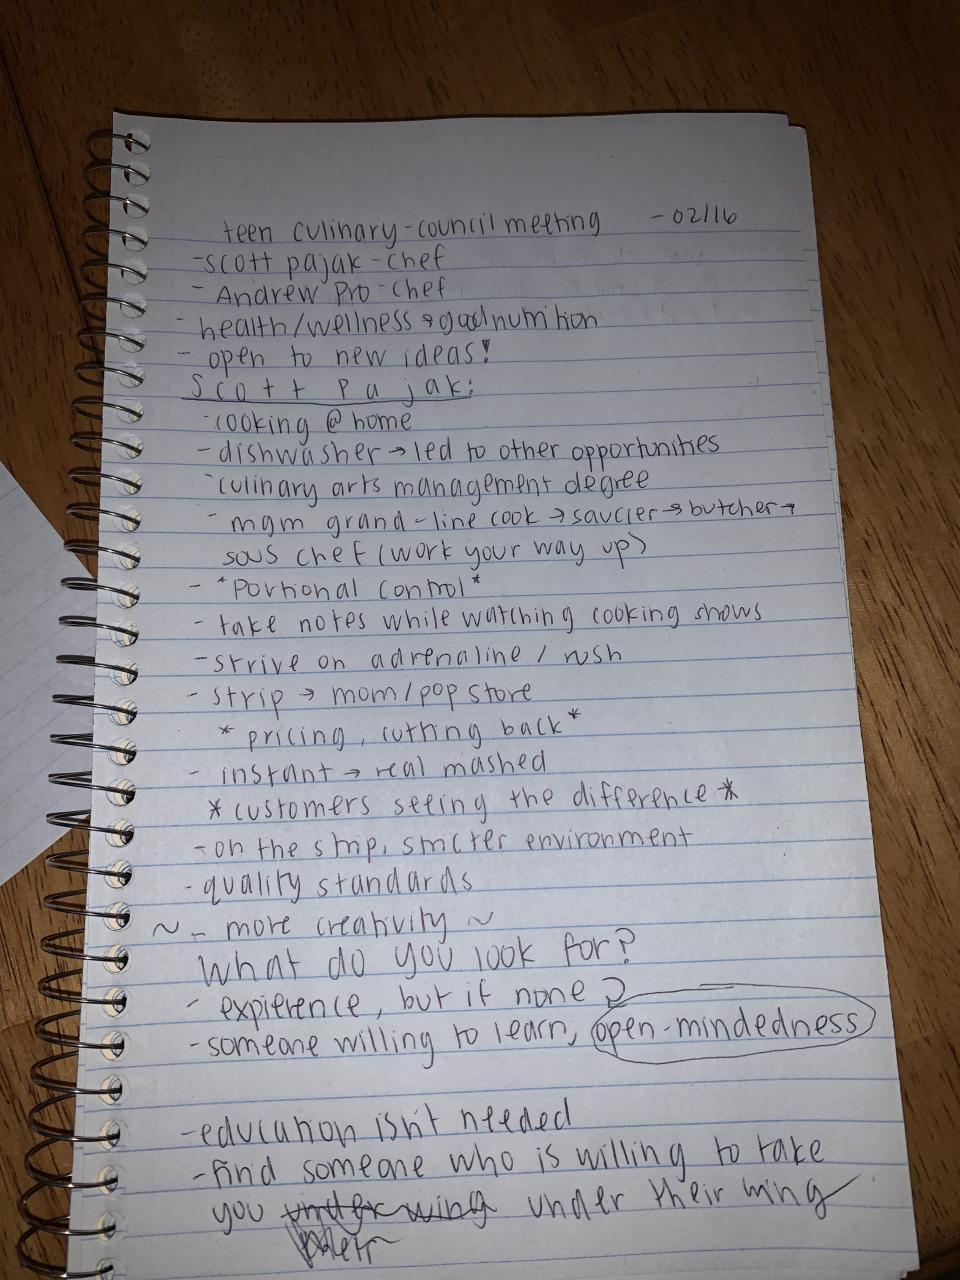 teen culinary-council meeting -02/16
-scott pajak-chef
- Andrew Pro-chef
- health/wellness & good nutrition
- open to new ideas!
Scott Pajak:
-cooking @ home
- dishwasher→led to other opportunities
-culinary arts management degree
- mgm grand-line cook →saucier→butcher→
sous chef (work your way up)
- *Portional control*
- take notes while watching cooking shows
-strive on adrenaline / rush
- strip → mom/pop store
* pricing, cutting back*
- instant → real mashed
*customers seeing the difference*
-on the strip, stricter environment
-quality standards
~ - more creativity ~
What do you look for?
- expierence, but if none
-someone willing to learn, open-mindedness
-education isn't needed
-find someone who is willing to take
you under wing under their wing
their